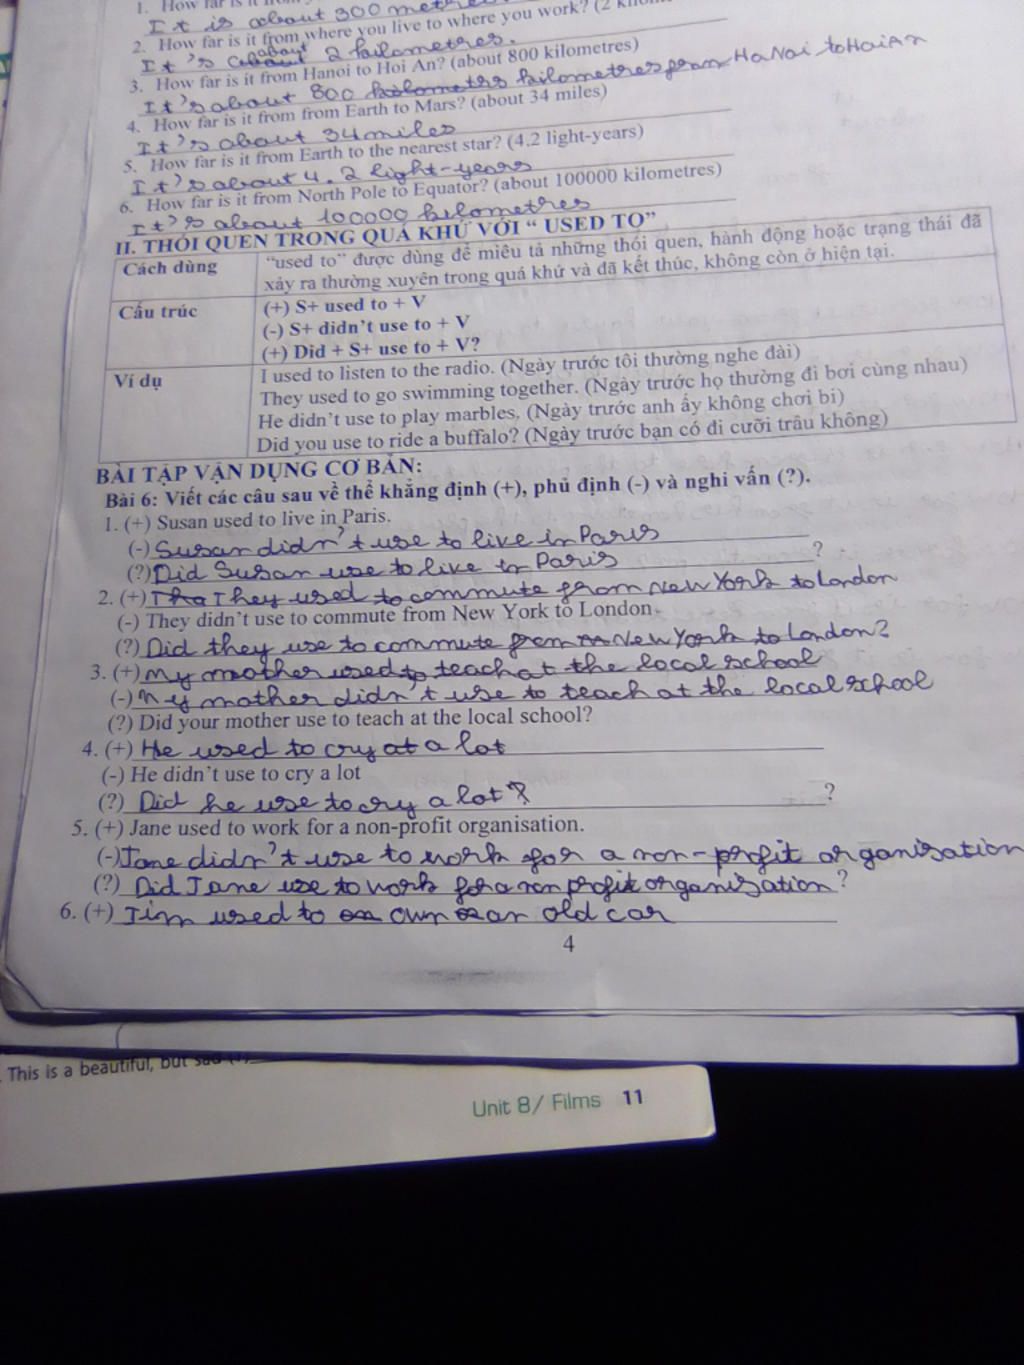 1. How far is it
It is about 300 metres
2. How far is it from where you live to where you work? (2
It's about 2 kilometres.
3. How far is it from Hanoi to Hoi An? (about 800 kilometres)
It's about 800 kilometres from HaNoi to HoiAn
4. How far is it from from Earth to Mars? (about 34 miles)
It's about 34 miles
5. How far is it from Earth to the nearest star? (4.2 light-years)
It's about 4.2 light-years
6. How far is it from North Pole to Equator? (about 100000 kilometres)
It's about 100000 kilometres
II. THÓI QUEN TRONG QUÁ KHỨ VỚI “ USED TO”
Cách dùng
“used to” được dùng để miêu tả những thói quen, hành động hoặc trạng thái đã
xảy ra thường xuyên trong quá khứ và đã kết thúc, không còn ở hiện tại.
Cấu trúc
(+) S+ used to + V
(-) S+ didn’t use to + V
(+) Did + S+ use to + V?
Ví dụ
I used to listen to the radio. (Ngày trước tôi thường nghe đài)
They used to go swimming together. (Ngày trước họ thường đi bơi cùng nhau)
He didn’t use to play marbles. (Ngày trước anh ấy không chơi bi)
Did you use to ride a buffalo? (Ngày trước bạn có đi cưỡi trâu không)
BÀI TẬP VẬN DỤNG CƠ BẢN:
Bài 6: Viết các câu sau về thể khẳng định (+), phủ định (-) và nghi vấn (?).
1. (+) Susan used to live in Paris.
(-) Susan didn't use to live in Paris
(?) Did Susan use to live in Paris ?
2. (+) They used to commute from New York to London
(-) They didn’t use to commute from New York to London.
(?) Did they use to commute from New York to London?
3. (+) My mother used to teach at the local school
(-) My mother didn't use to teach at the local school
(?) Did your mother use to teach at the local school?
4. (+) He used to cry at a lot
(-) He didn’t use to cry a lot
(?) Did he use to cry a lot? ?
5. (+) Jane used to work for a non-profit organisation.
(-) Jane didn't use to work for a non-profit organisation
(?) Did Jane use to work for a non profit organisation?
6. (+) Jim used to own an old car
4
This is a beautiful, but sad
Unit 8/ Films 11